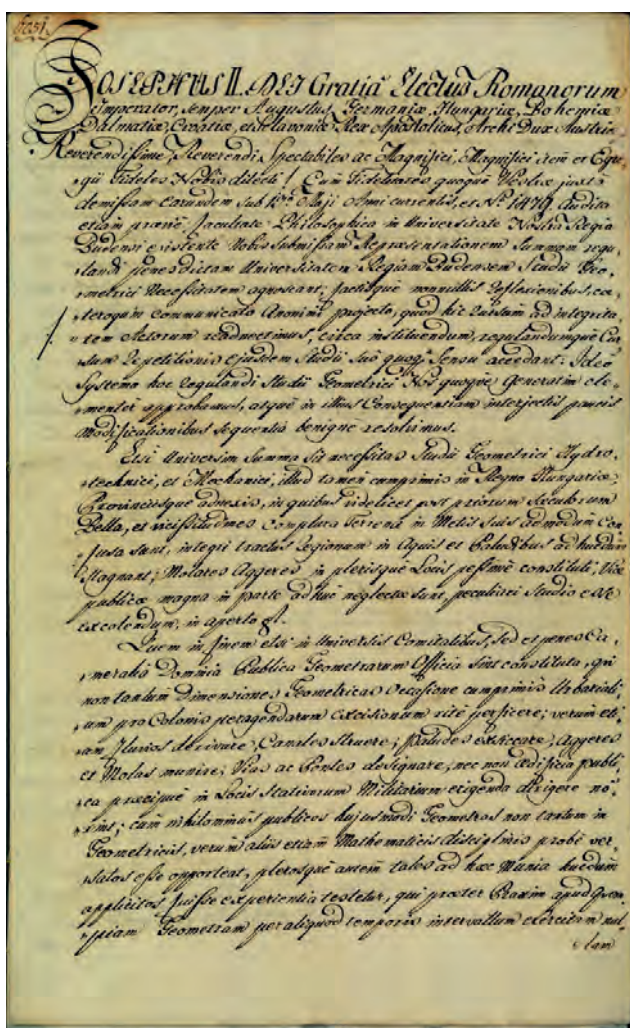 6051.
JOSEPHUS II. DEI Gratiâ Electus Romanorum
Imperator, semper Augustus, Germaniæ, Hungariæ, Bohemiæ
Dalmatiæ, Croatiæ, et Sclavoniæ Rex Apostolicus, Archi Dux Austriæ
Reverendissime, Reverendi, Spectabiles ac Magnifici, Magnifici item et Egre-
gii Fideles Nobis dilecti! Cum Fidelitates quoque Vestræ juxta
demissam earundem sub Maji anni currentis, et No. 1479 audita
etiam prævie Facultate Philosophica in Universitate Nostra Regia
Budensi existente Nobis submissam Repræsentationem summam regu-
landi penes dictam Universitatem Regiam Budensem Studii Geo-
metrici Necessitatem agnoscant; factisque nonnullis Reflexionibus, cæ-
teroquin communicato Anonimi projecto, quod hic rursum ad integrita-
tem Actorum readnectimus, circa instituendum, regulandumque Cur-
sum Repetitionis ejusdem Studii suo quoque Sensu accedant: Ideo
Systema hoc regulandi Studii Geometrici Nos quoque Generatim cle-
menter approbamus, atque in illius Consequentiam interjectis paucis
Modificationibus sequentia benigne resolvimus.
Etsi Universim Summa sit necessitas Studii Geometrici Hydro-
technici, et Mechanici, illud tamen cumprimis in Regno Hungariæ,
Provinciisque adnexis, in quibus videlicet post priorum Sæculorum
Bella, et vicissitudines complura Terrena in Metis suis admodum Con-
fusa sunt, integri tractus Regionum in Aquis et Paludibus adhucdum
stagnant; Molares Aggeres in plerisque Locis pessime constituti, Viæ
publicæ magna in parte adhuc neglectæ sunt, peculiari Studio esse
excolendum, in aperto est.
Quem in finem etsi in Universis Comitatibus, sed et penes Ca-
meralia Dominia Publica Geometrarum Officia sint constituta, qui
non tantum Dimensiones Geometricas Occasione cumprimis Urbariali-
um pro Colonis peragendarum excisionum rite perficere; verum eti-
am Fluvios derivare, Canales struere, Paludes exsiccare, Aggeres
et Molas munire; Vias ac Pontes designare, nec non ædificia publi-
ca præcipue in Locis Stativorum Militarium erigenda dirigere no-
rint; cum nihilominus publicos hujusmodi Geometras non tantum in
Geometricis, verum aliis etiam Mathematicis disciplinis probe ver-
satos esse oporteat, plerosque autem tales ad hæc Munia hucdum
applicitos fuisse experientia testetur, qui præter Praxim apud Quem-
piam Geometram per aliquod temporis intervallum exercitam nul-
lam